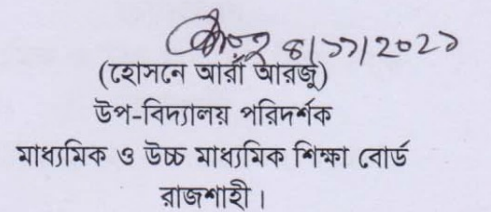 ৪/১১/২০২১
(হোসনে আরা আরজু)
উপ-বিদ্যালয় পরিদর্শক
মাধ্যমিক ও উচ্চ মাধ্যমিক শিক্ষা বোর্ড
রাজশাহী।